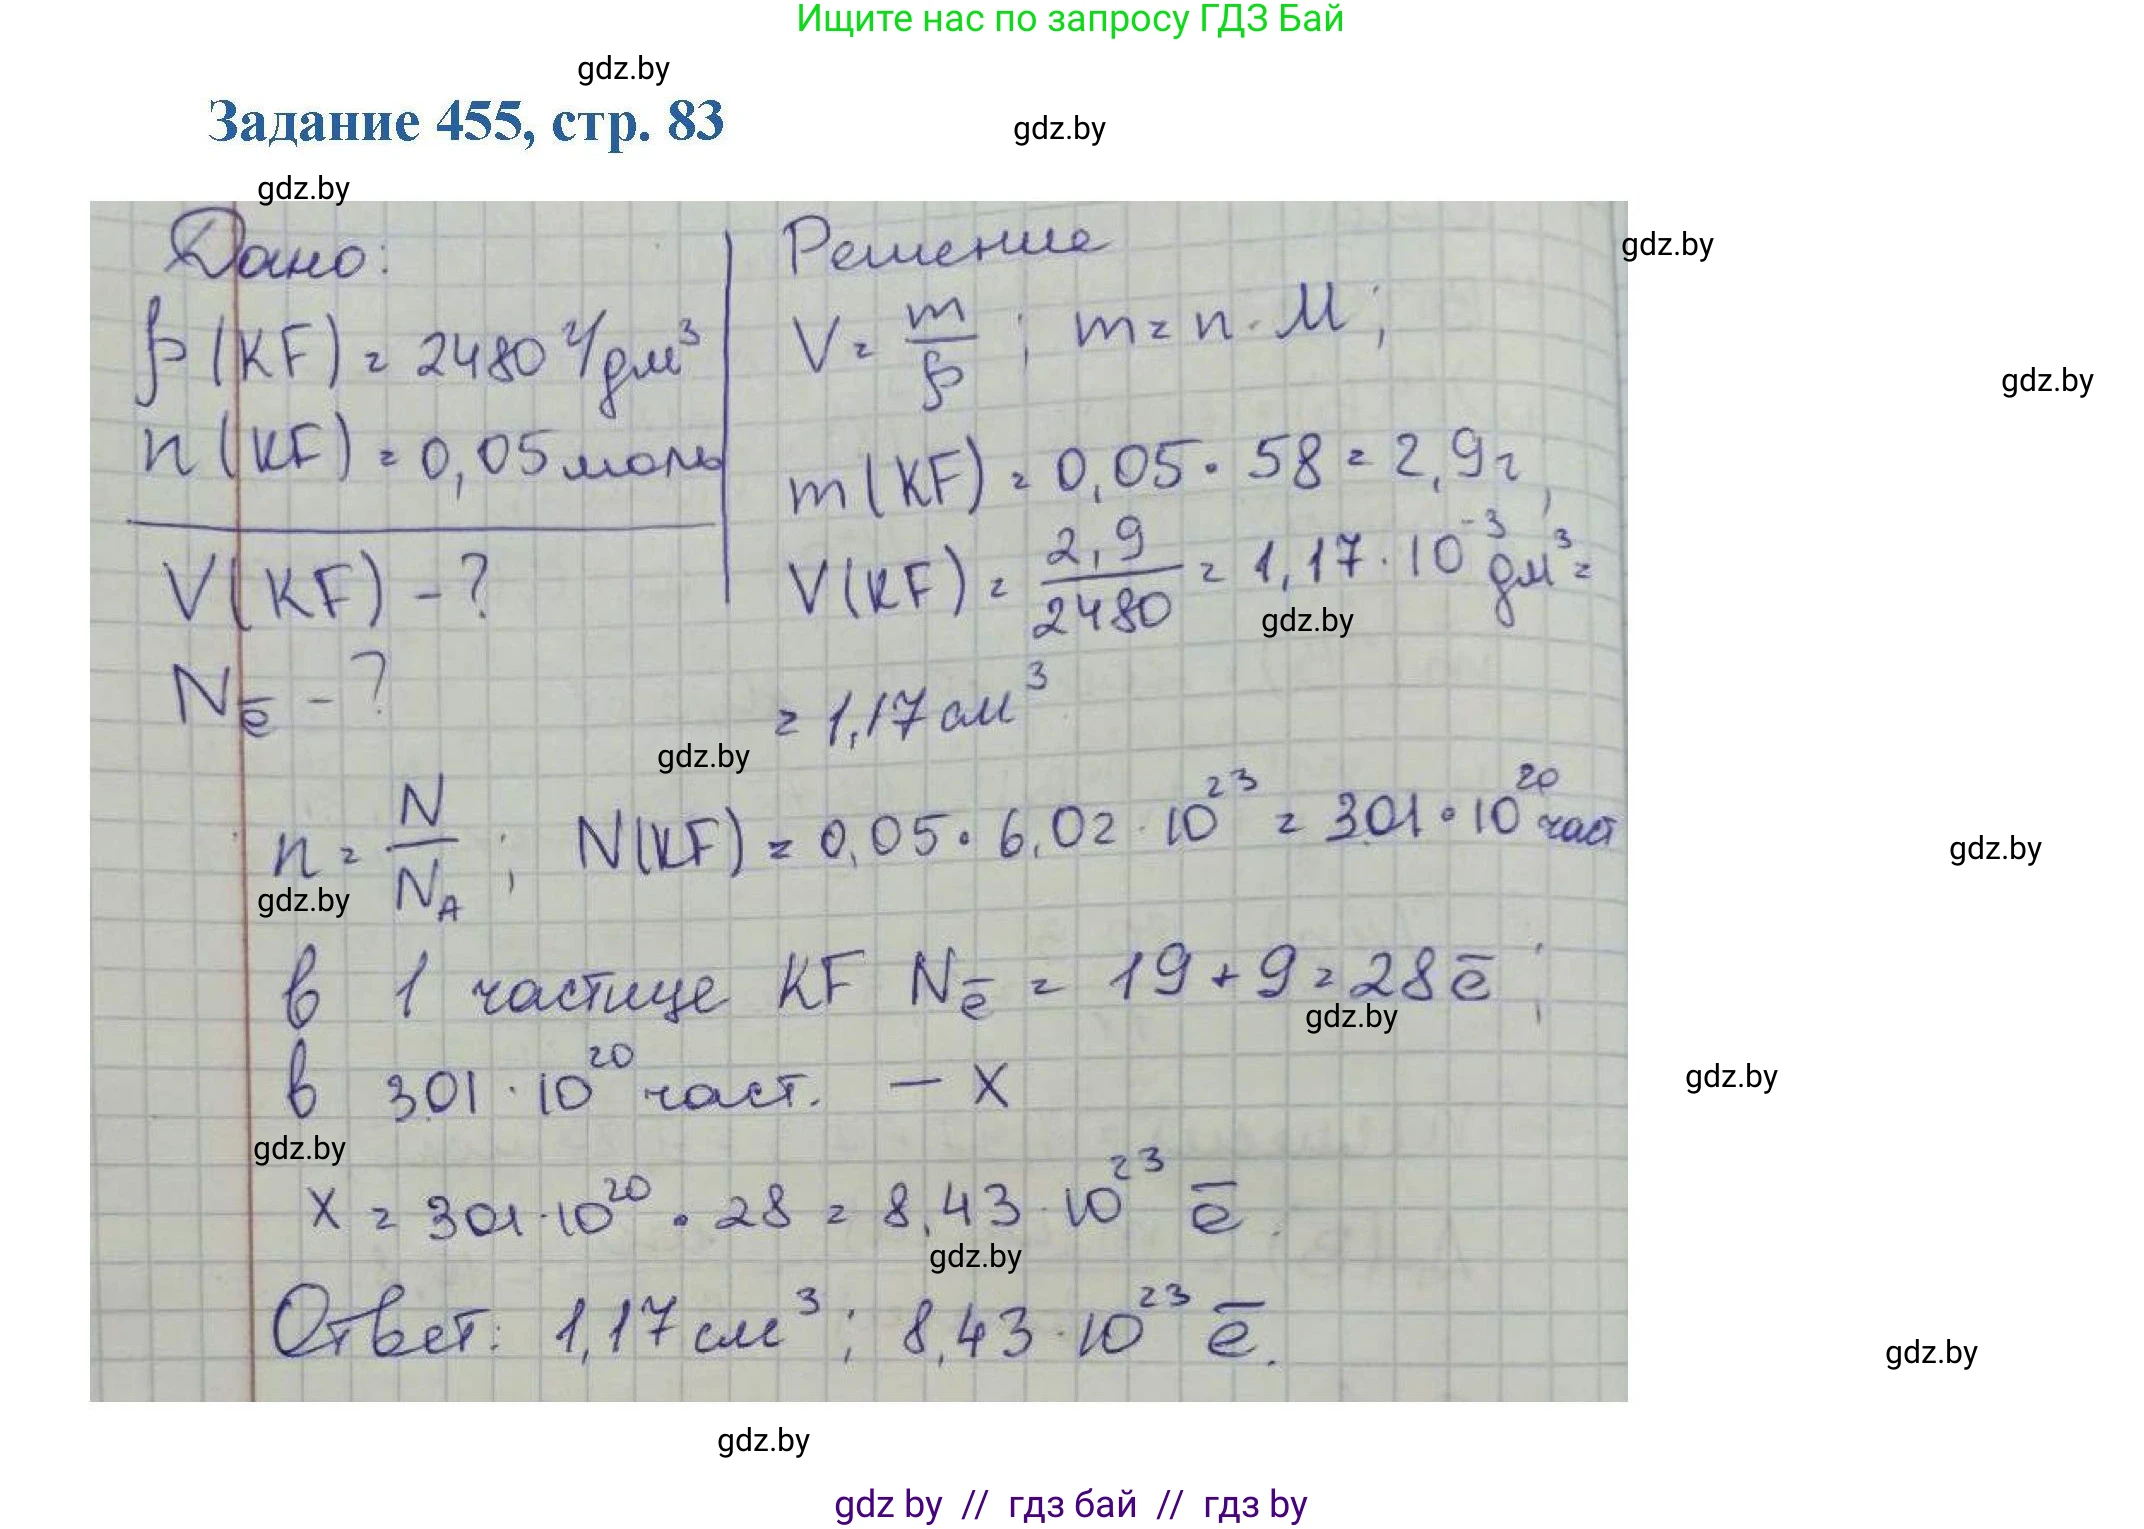 Ищите нас по запросу ГДЗ Бай
gdz.by
Задание 455, стр. 83
gdz.by
gdz.by
Дано:
Решение
gdz.by
ρ (KF) = 2480 г/дм³
V = m/ρ ; m = n · M ;
gdz.by
n (KF) = 0,05 моль
m (KF) = 0,05 · 58 = 2,9 г,
V (KF) - ?
V (KF) = 2,9/2480 = 1,17 · 10⁻³ дм³ =
gdz.by
Nē - ?
= 1,17 см³
gdz.by
n = N/N_A ; N(KF) = 0,05 · 6,02 · 10²³ = 301 · 10²⁰ част
gdz.by
gdz.by
в 1 частице KF Nē = 19 + 9 = 28 ē ;
gdz.by
в 301 · 10²⁰ част. — X
gdz.by
gdz.by
X = 301 · 10²⁰ · 28 = 8,43 · 10²³ ē.
gdz.by
Ответ: 1,17 см³ ; 8,43 · 10²³ ē.
gdz.by
gdz.by
gdz by // гдз бай // гдз by